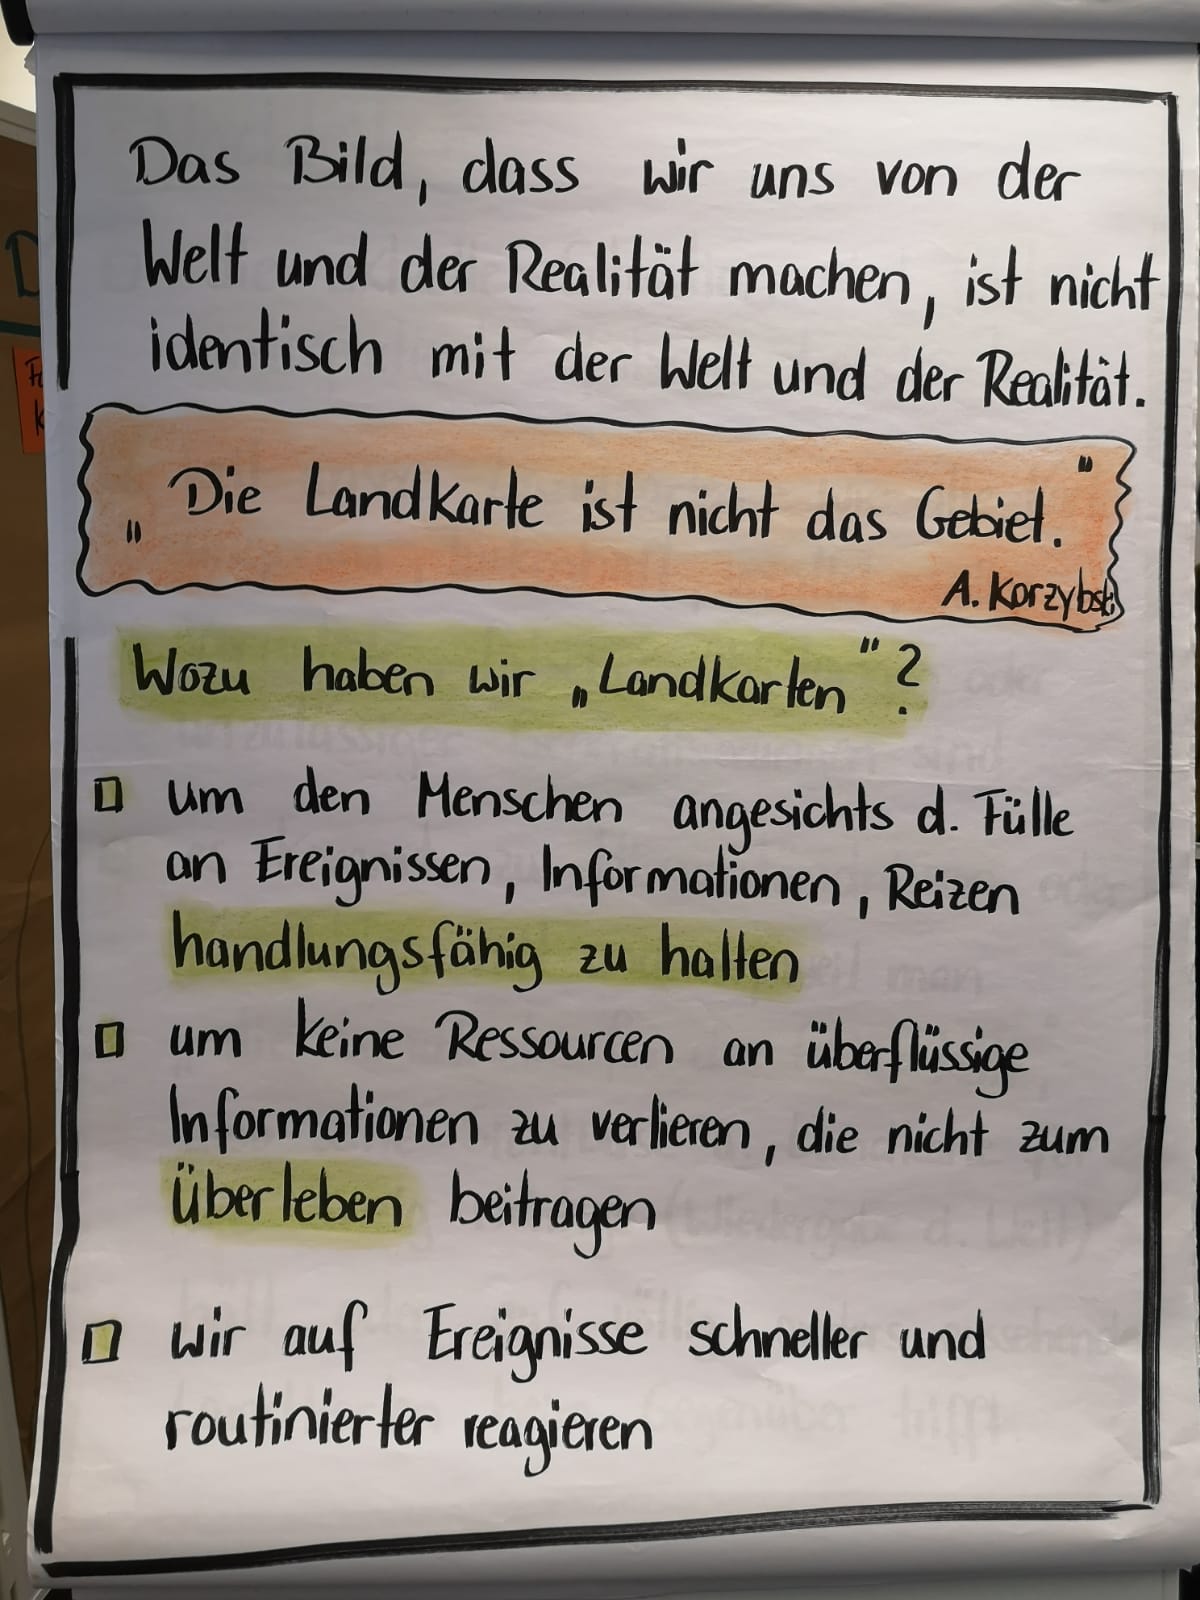 Das Bild, dass wir uns von der
Welt und der Realität machen, ist nicht
identisch mit der Welt und der Realität.
„Die Landkarte ist nicht das Gebiet.“
A. Korzybski
Wozu haben wir „Landkarten“?
um den Menschen angesichts d. Fülle
an Ereignissen, Informationen, Reizen
handlungsfähig zu halten
um keine Ressourcen an überflüssige
Informationen zu verlieren, die nicht zum
überleben beitragen
wir auf Ereignisse schneller und
routinierter reagieren